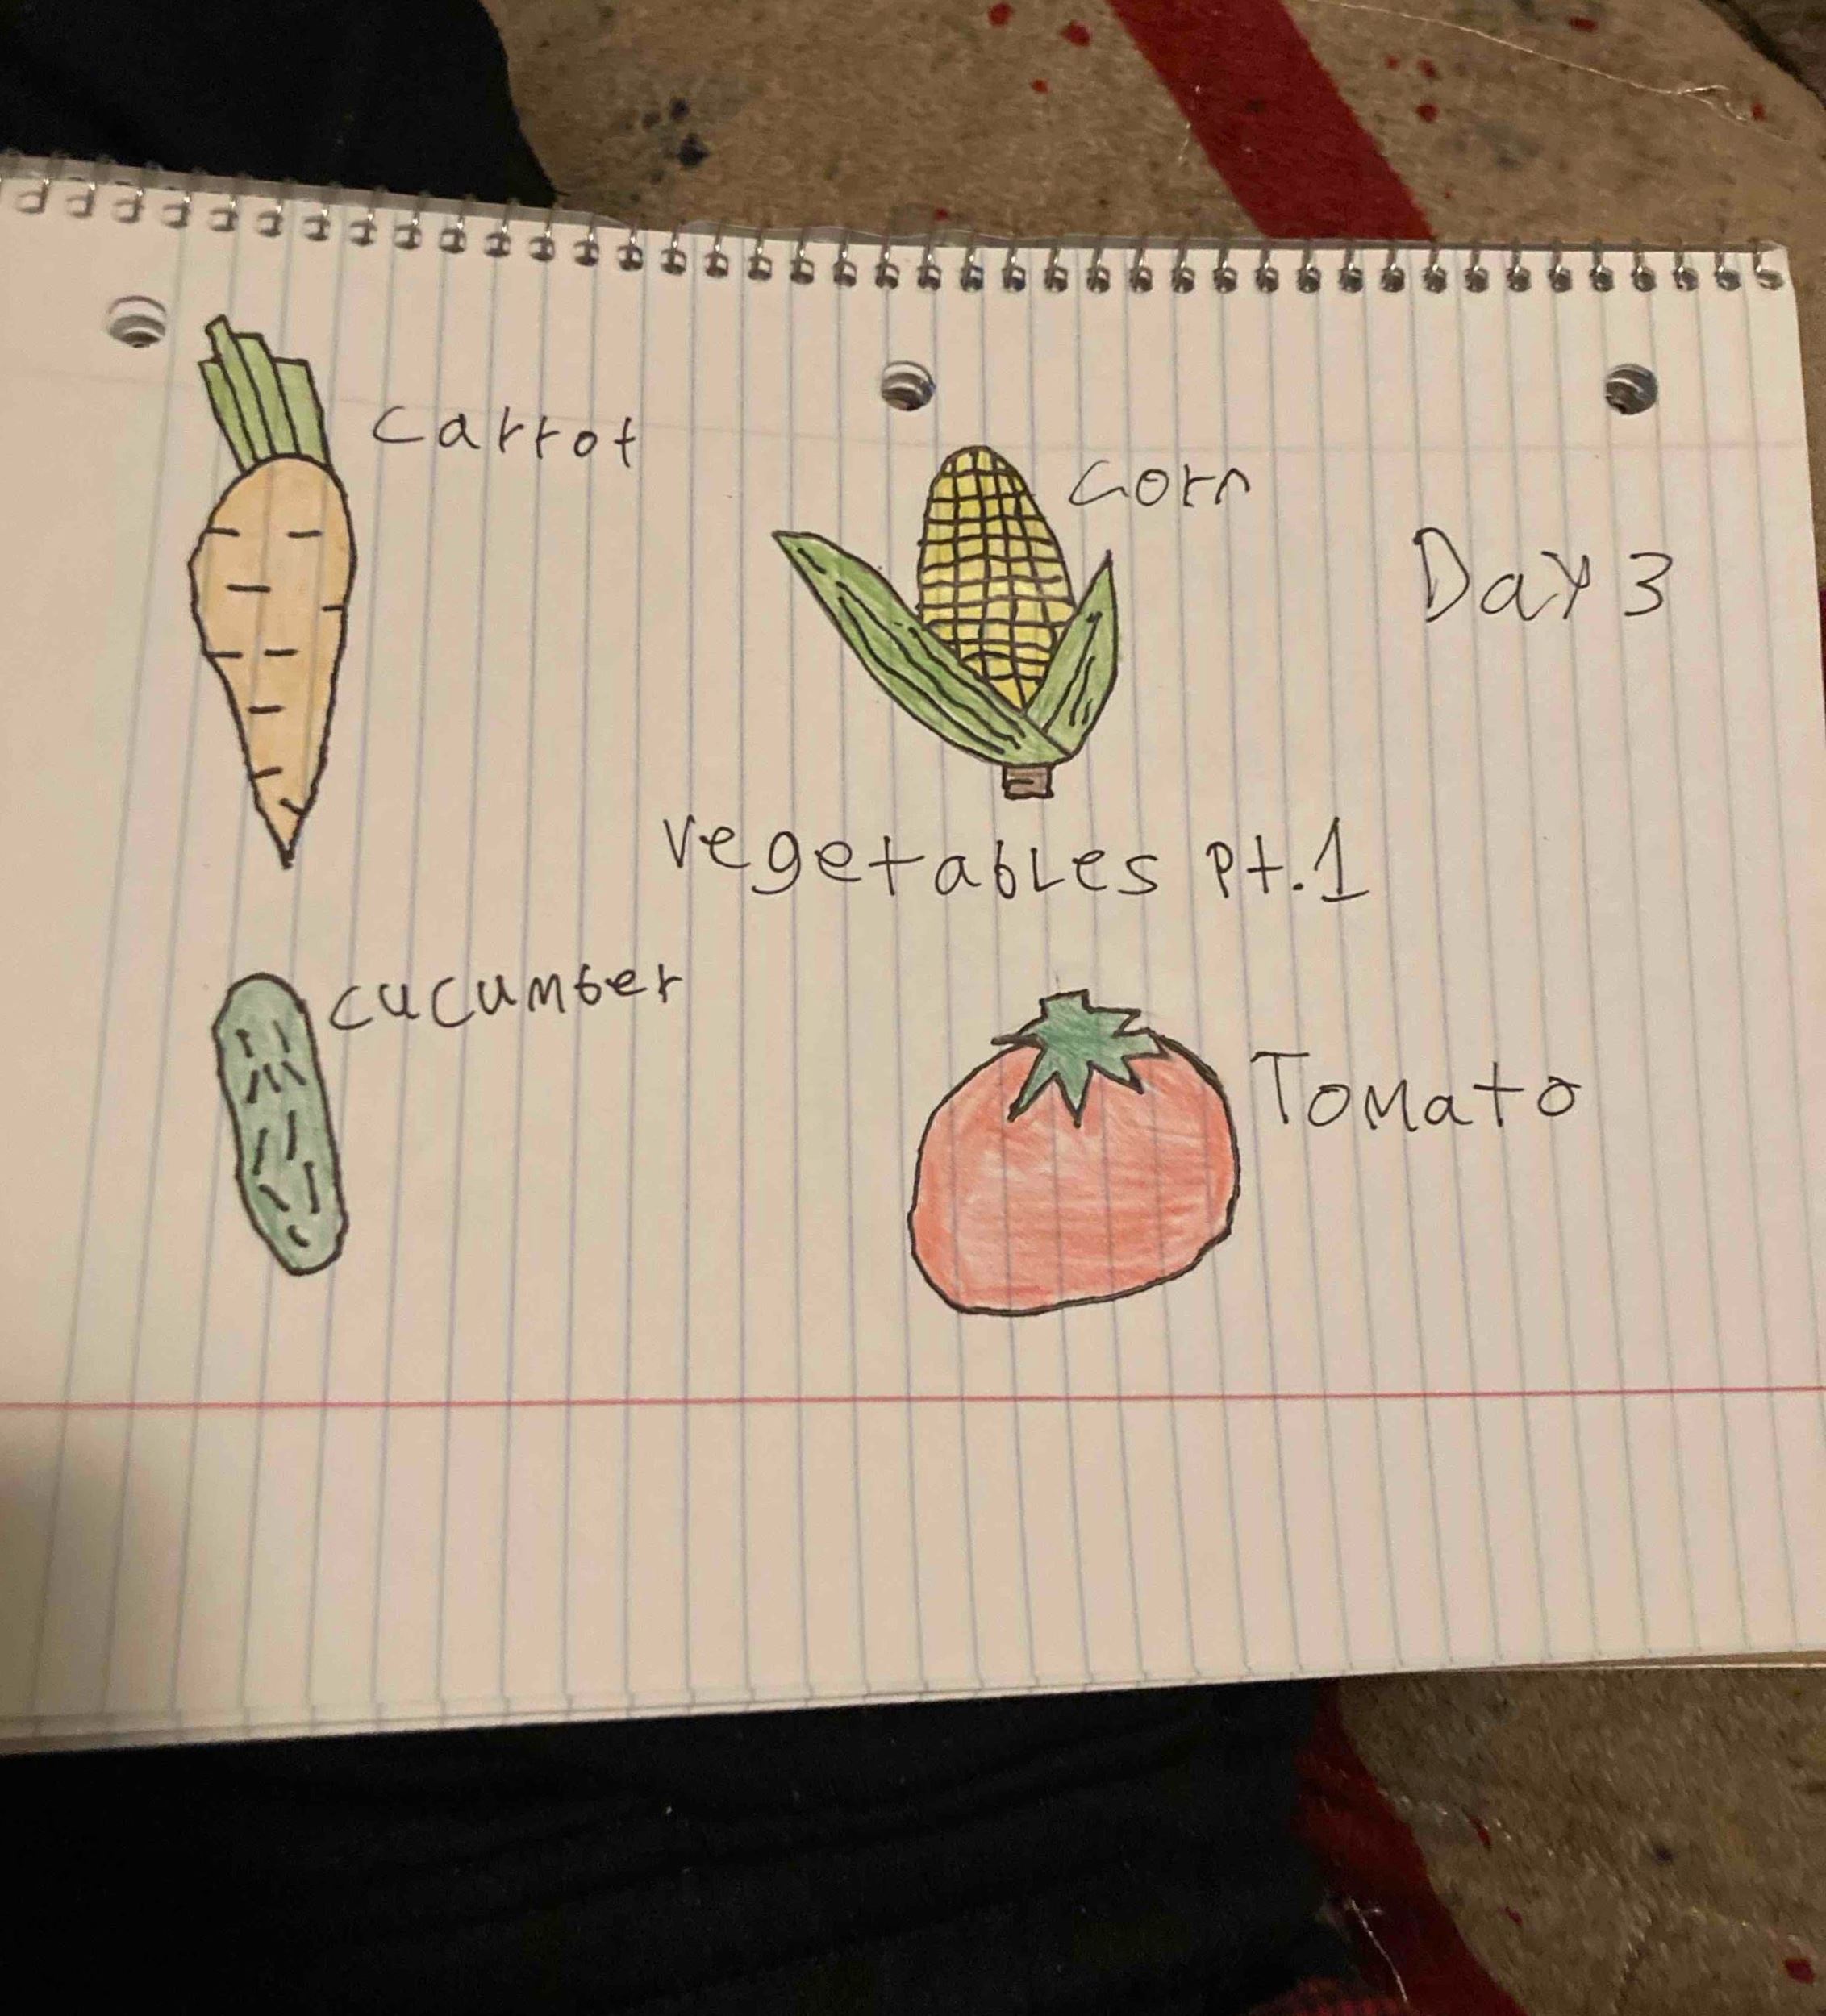 carrot
corn
Day 3
vegetables pt.1
cucumber
Tomato